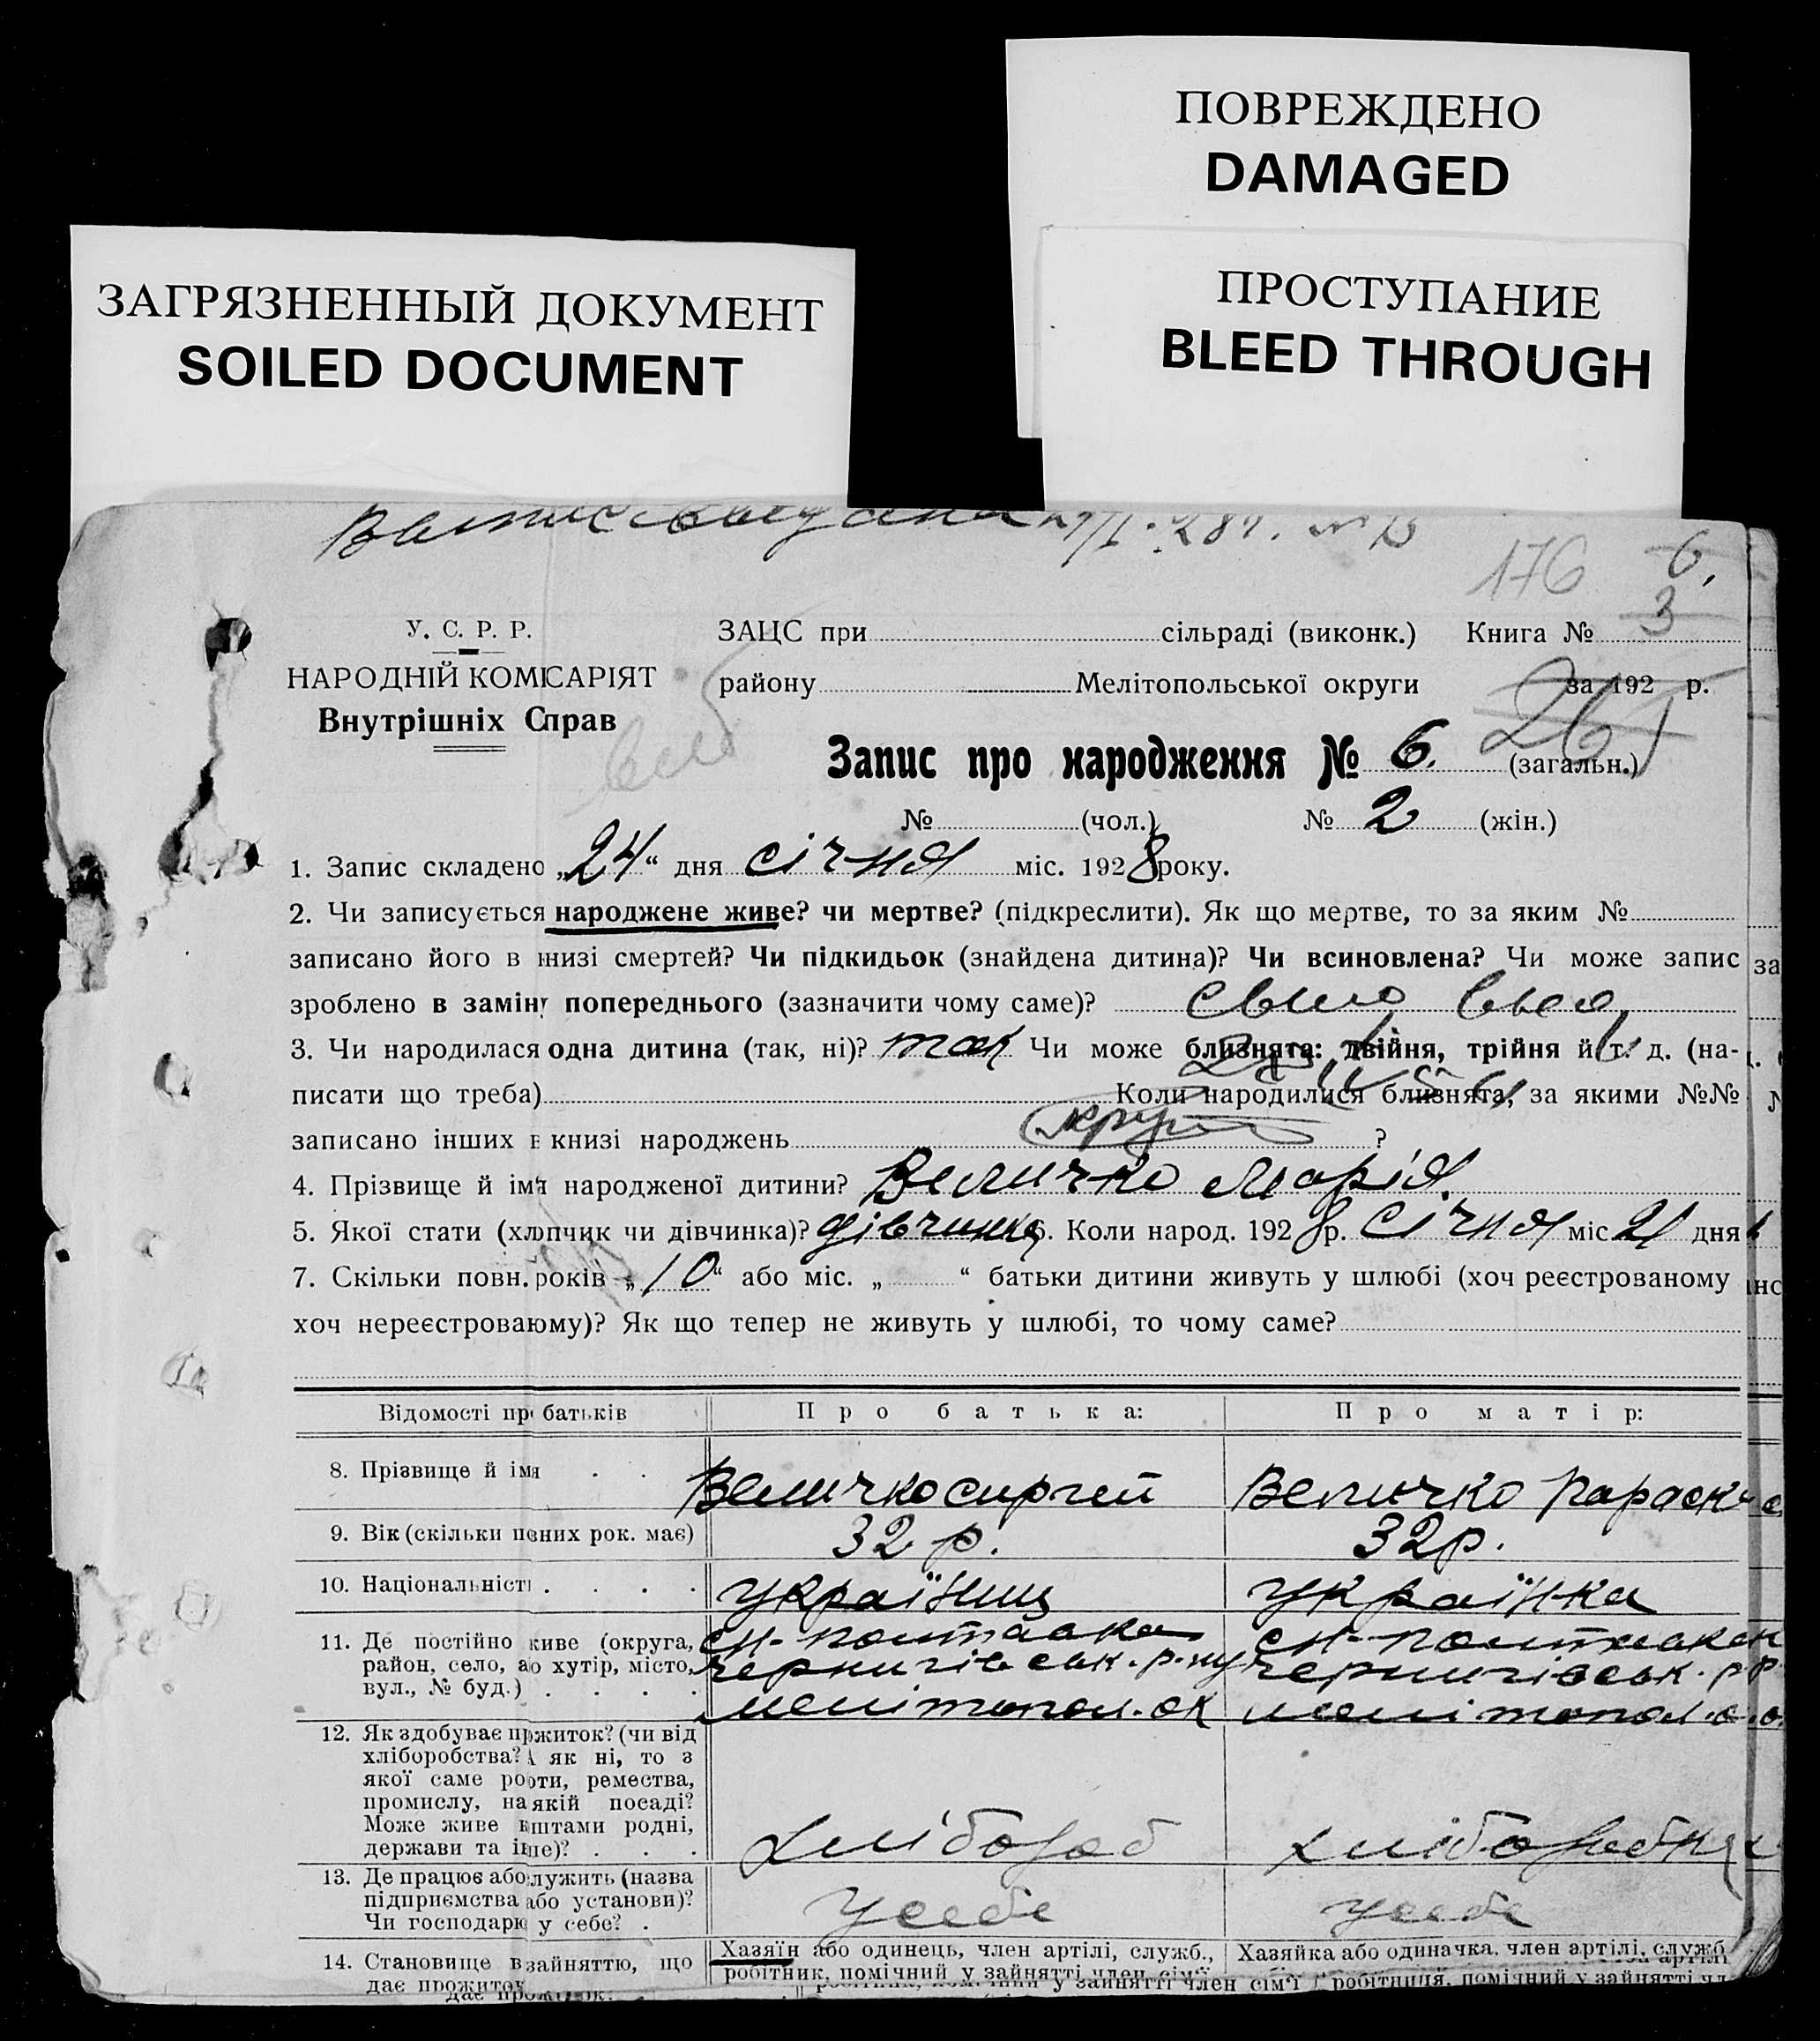 ПОВРЕЖДЕНО
DAMAGED
ЗАГРЯЗНЕННЫЙ ДОКУМЕНТ
SOILED DOCUMENT
ПРОСТУПАНИЕ
BLEED THROUGH
176 6.
3
У. С. Р. Р.
НАРОДНІЙ КОМІСАРІЯТ
Внутрішніх Справ
ЗАЦС при сільраді (виконк.) Книга №
району Мелітопольської округи за 192 р.
Запис про народження № 6. (загальн.)
№ (чол.) № 2 (жін.)
1. Запис складено „24“ дня січня міс. 1928 року.
2. Чи записується народжене живе? чи мертве? (підкреслити). Як що мертве, то за яким №
записано його в книзі смертей? Чи підкидьок (знайдена дитина)? Чи всиновлена? Чи може запис
зроблено в заміну попереднього (зазначити чому саме)?
3. Чи народилася одна дитина (так, ні)? так Чи може близнята: двійня, трійня й т. д. (на-
писати що треба) Коли народилися близнята, за якими №№
записано інших в книзі народжень ?
4. Прізвище й імя народженої дитини? Величко Марія.
5. Якої стати (хлопчик чи дівчинка)? дівчинка 6. Коли народ. 1928 р. січня міс 21 дня
7. Скільки повн. років „10“ або міс. „ “ батьки дитини живуть у шлюбі (хоч реєстрованому
хоч нереєстрованому)? Як що тепер не живуть у шлюбі, то чому саме?
Відомості про батьків Про батька: Про матір:
8. Прізвище й імя Величко Сиргей Величко Параск
9. Вік (скільки повних рок. має) 32 р. 32 р.
10. Національність українць українка
11. Де постійно живе (округа,
район, село, або хутір, місто,
вул., № буд.)
сн-полтавка
чернигівськ. р-ну
мелітопол. ок
сн-полтавка
чернигівськ. р
мелітопол. о
12. Як здобуває прожиток? (чи від
хліборобства? А як ні, то з
якої саме роботи, ремества,
промислу, на якій посаді?
Може живе коштами родні,
держави та інше)?
хлібороб хліборобка
13. Де працює або служить (назва
підприємства або установи)?
Чи господарює у себе?
у себе у себе
14. Становище в зайняттю, що
дає прожиток
Хазяїн або одинець, член артілі, служб.,
робітник, помічний у зайнятті член сім'ї
Хазяйка або одиначка, член артілі, служб
робітниця, помічний у зайнятті чл